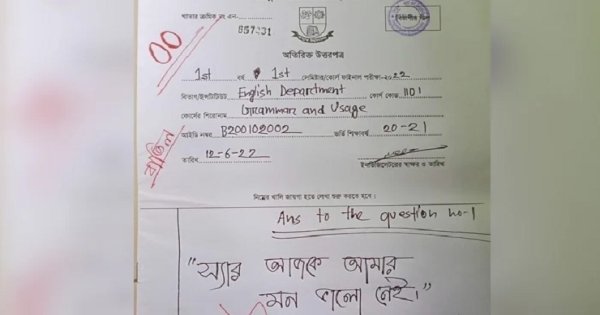 খাতার ক্রমিক নং এন:
857401
00
অতিরিক্ত উত্তরপত্র
1st বর্ষ 1st সেমিস্টার/কোর্স ফাইনাল পরীক্ষা-২০22
বিভাগ/ইন্সটিটিউট English Department কোর্স কোড 1101
কোর্সের শিরোনাম Grammar and Usage
আইডি নম্বর B200102002 ভর্তি শিক্ষাবর্ষ 20-21
বাতিল
তারিখ 12-6-22
ইনভিজিলেটরের স্বাক্ষর ও তারিখ
নিম্নের খালি জায়গা হতে লেখা শুরু করতে হবে।
Ans to the question no-1
"স্যার আজকে আমার
মন ভালো নেই।"